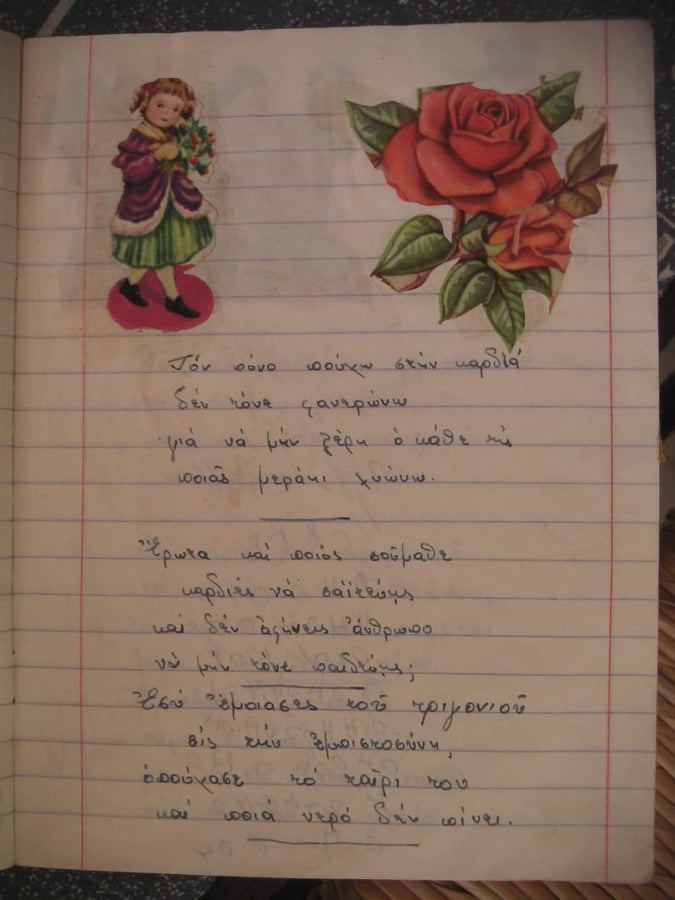 Τόν πόνο πούχω στήν καρδιά
δέν τόνε φανερώνω
γιά νά μήν ξέρη ὁ κάθε τίς
ποιᾶς μεράκι λυώνω.
Ἔρωτα καί ποιός σοὔμαθε
καρδιές νά σαϊτεύης
καί δέν ἀφήνεις ἄνθρωπο
νά μήν τόνε παιδεύης;
Ἐσύ ἔμοιασες τοῦ τριγονιοῦ
εἰς τήν ἐμπιστοσύνη,
ὁπούχασε τό ταίρι του
καί ποιά νερό δέν πίνει.